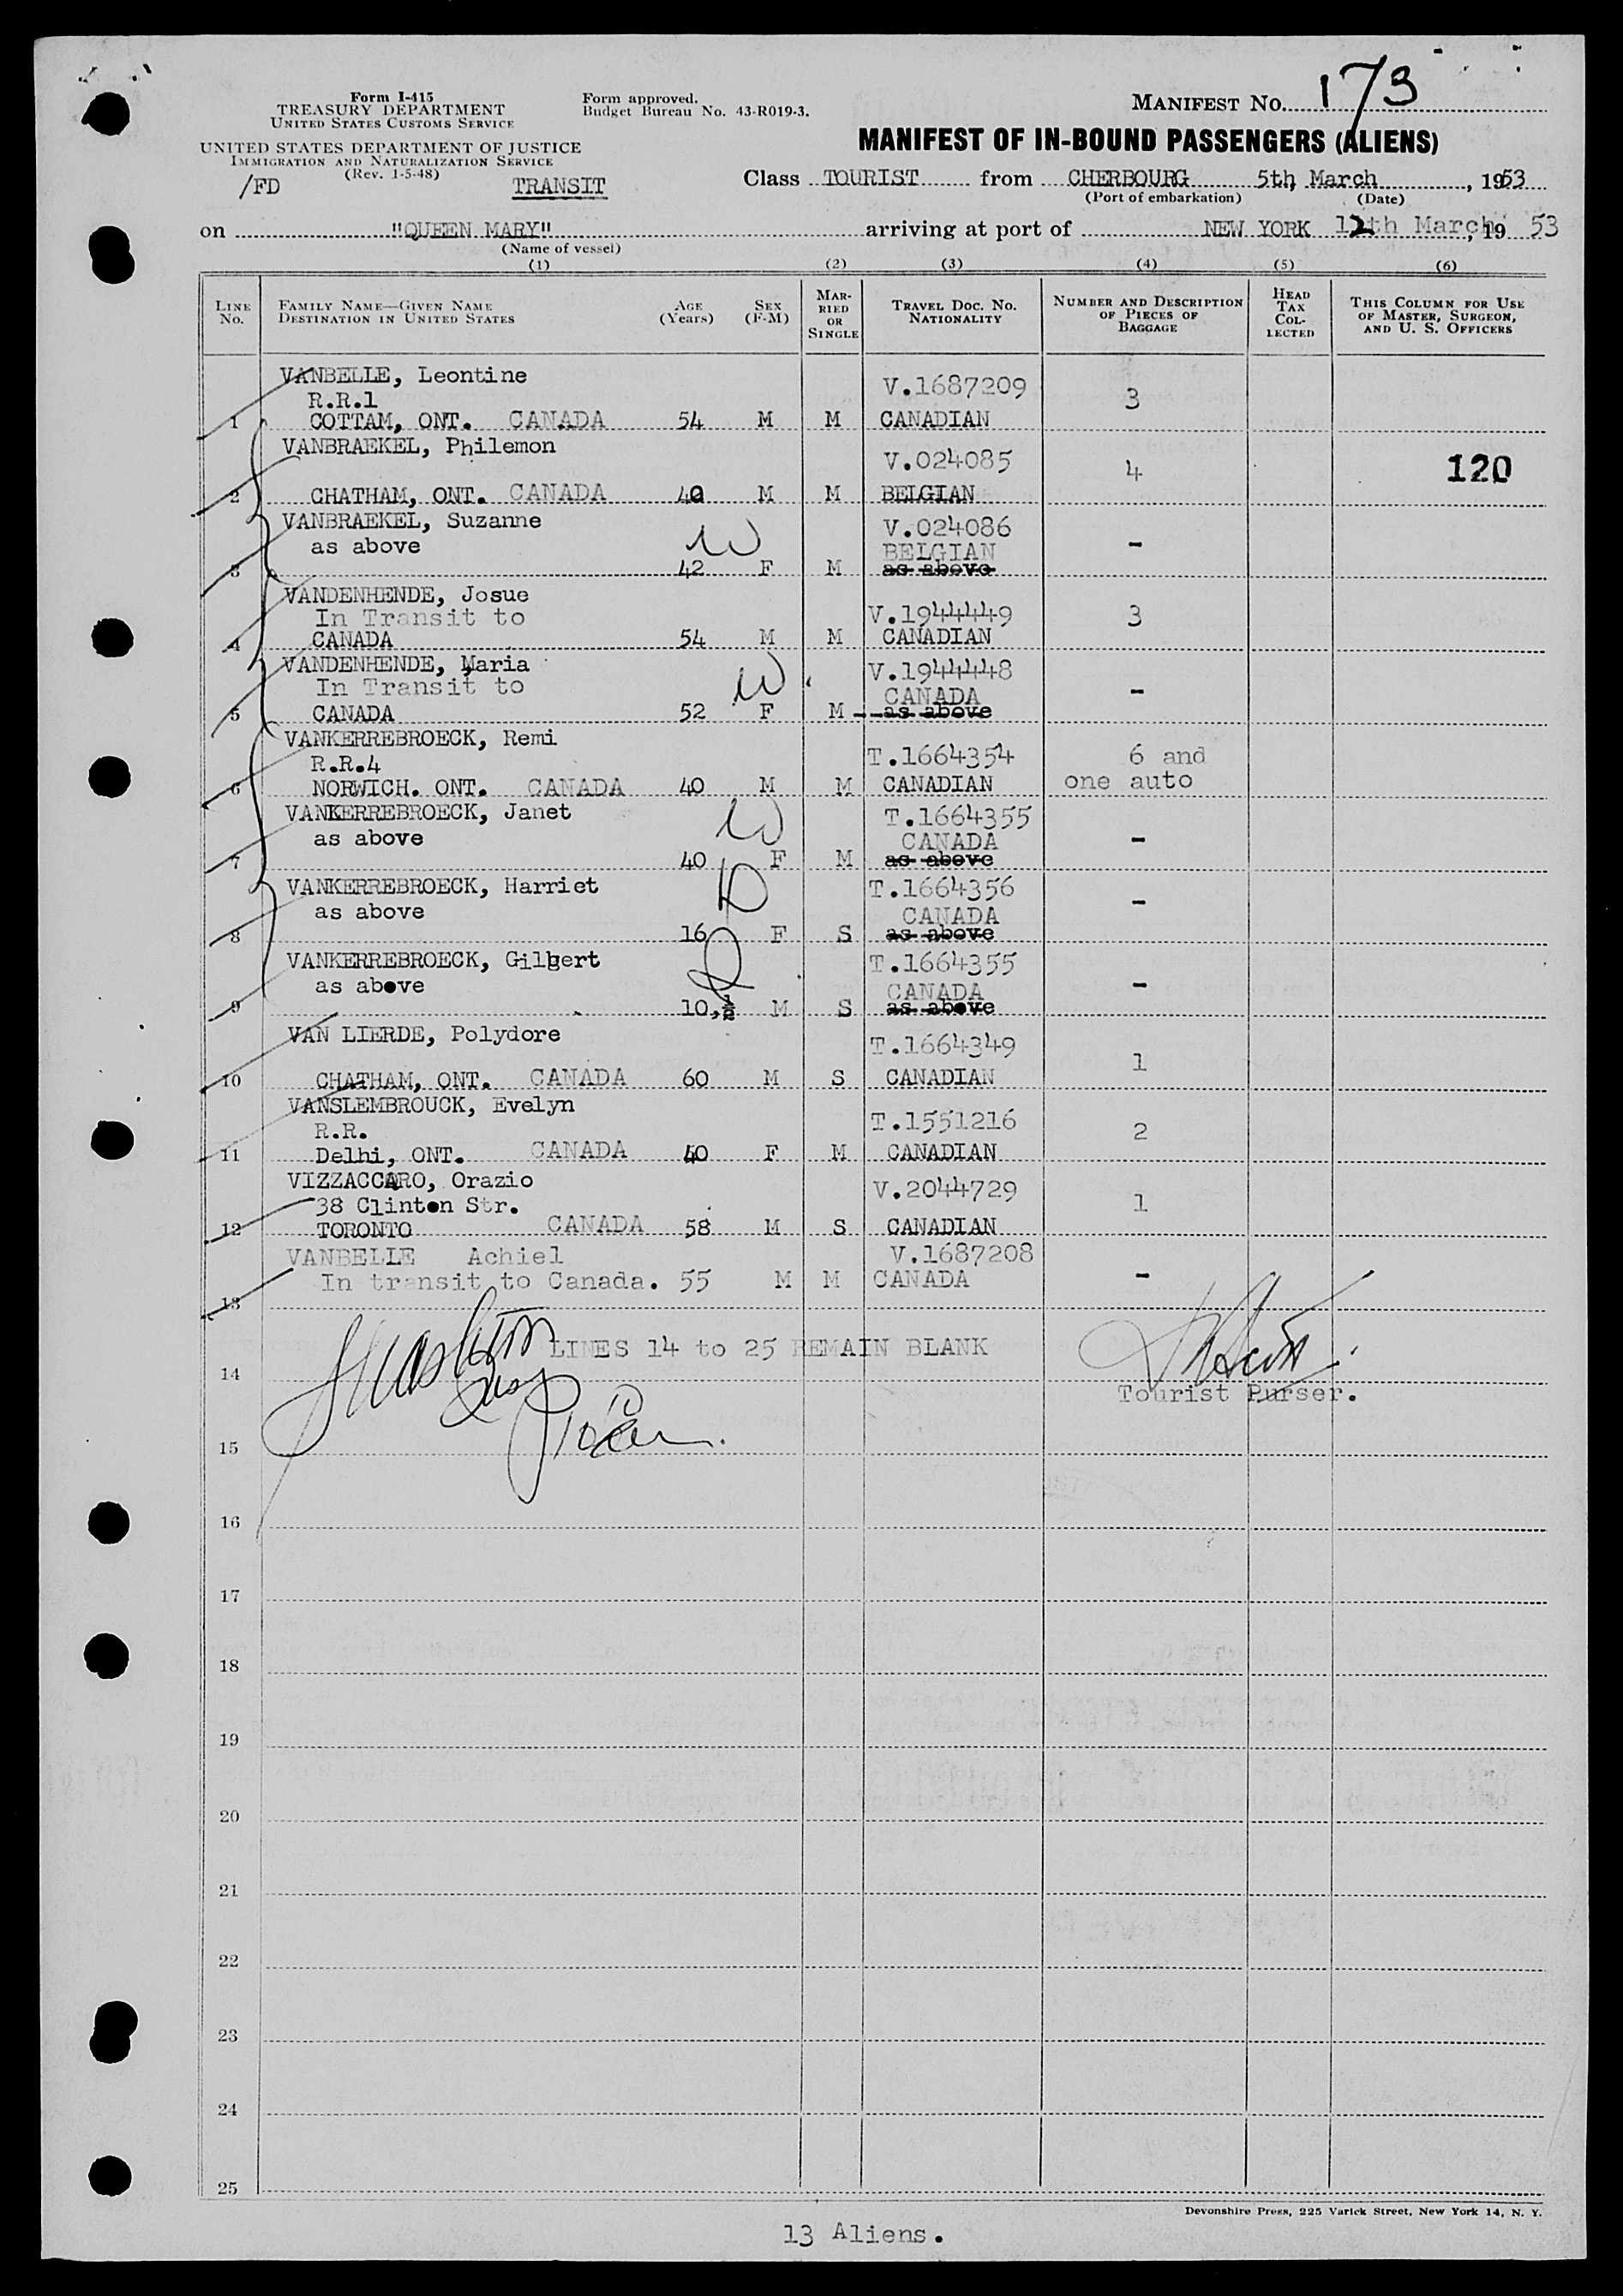 Form I-415
TREASURY DEPARTMENT
UNITED STATES CUSTOMS SERVICE
UNITED STATES DEPARTMENT OF JUSTICE
IMMIGRATION AND NATURALIZATION SERVICE
(Rev. 1-5-48)
/FD TRANSIT
Form approved.
Budget Bureau No. 43-R019-3.
MANIFEST NO. 173
MANIFEST OF IN-BOUND PASSENGERS (ALIENS)
Class TOURIST from CHERBOURG 5th March, 1953
(Port of embarkation) (Date)
on "QUEEN MARY" arriving at port of NEW YORK 12th March, 19 53
(Name of vessel)
(1) (2) (3) (4) (5) (6)
LINE No. FAMILY NAME—GIVEN NAME DESTINATION IN UNITED STATES AGE (Years) SEX (F-M) MARRIED OR SINGLE TRAVEL DOC. NO. NATIONALITY NUMBER AND DESCRIPTION OF PIECES OF BAGGAGE HEAD TAX COLLECTED THIS COLUMN FOR USE OF MASTER, SURGEON, AND U. S. OFFICERS
VANBELLE, Leontine V.1687209 3
R.R.1
1 COTTAM, ONT. CANADA 54 M M CANADIAN
VANBRAEKEL, Philemon V.024085 4 120
2 CHATHAM, ONT. CANADA 40 M M BELGIAN
VANBRAEKEL, Suzanne V.024086
as above W BELGIAN -
3 42 F M as above
VANDENHENDE, Josue
In Transit to V.1944449 3
4 CANADA 54 M M CANADIAN
VANDENHENDE, Maria V.1944448
In Transit to W CANADA -
5 CANADA 52 F M as above
VANKERREBROECK, Remi
R.R.4 T.1664354 6 and
6 NORWICH. ONT. CANADA 40 M M CANADIAN one auto
VANKERREBROECK, Janet W T.1664355
as above CANADA -
7 40 F M as above
VANKERREBROECK, Harriet D T.1664356
as above CANADA -
8 16 F S as above
VANKERREBROECK, Gilbert T.1664355
as above CANADA -
9 10,½ M S as above
VAN LIERDE, Polydore T.1664349 1
10 CHATHAM, ONT. CANADA 60 M S CANADIAN
VANSLEMBROUCK, Evelyn T.1551216
R.R. 2
11 Delhi, ONT. CANADA 40 F M CANADIAN
VIZZACCARO, Orazio V.2044729
38 Clinton Str. 1
12 TORONTO CANADA 58 M S CANADIAN
VANBELLE Achiel V.1687208
In transit to Canada. 55 M M CANADA -
13
LINES 14 to 25 REMAIN BLANK
14 Tourist Purser.
15
16
17
18
19
20
21
22
23
24
25
Devonshire Press, 225 Varick Street, New York 14, N. Y.
13 Aliens.